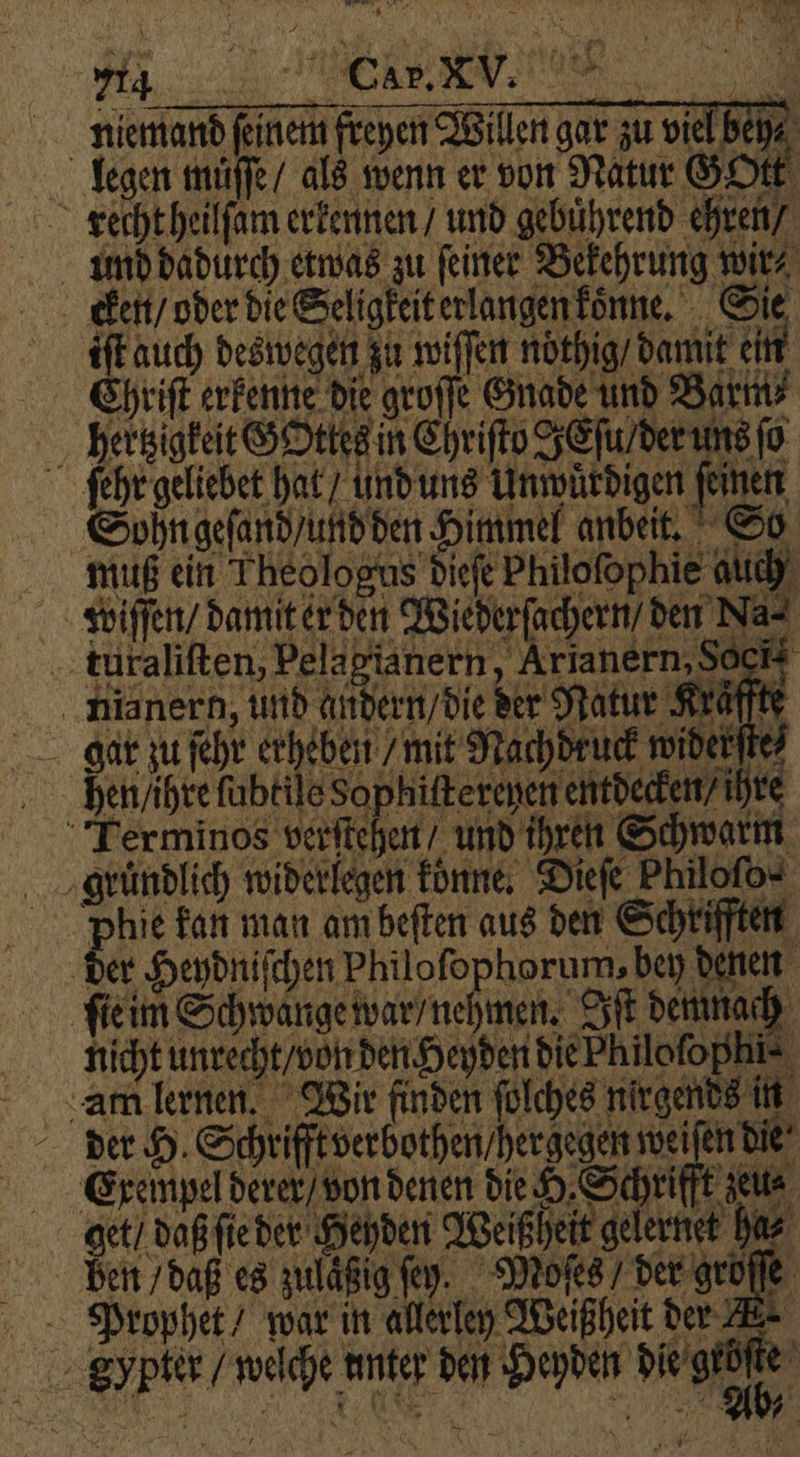 714 CAP. XV.
niemand ſeinem freyen Willen gar zu viel bey⸗
legen muͤſſe / als wenn er von Natur GOtt
recht heilſam erkennen / und gebuͤhrend ehren /
und dadurch etwas zu ſeiner Bekehrung wir⸗
cken / oder die Seligkeit erlangen koͤnne. Sie
iſt auch deswegen zu wiſſen noͤthig / damit ein
Chriſt erkenne die groſſe Gnade und Barm⸗
hertzigkeit GOttes in Chriſto JEſu / der uns ſo
ſehr geliebet hat / und uns Unwuͤrdigen ſeinen
Sohn geſand / und den Himmel anbeit. So
muß ein Theologus dieſe Philoſophie auch
wiſſen / damit er den Wiederſachern / den Na-
turaliſten, Pelagianern, Arianern, Soci-
nianern, und andern / die der Natur Kraͤffte
gar zu ſehr erheben / mit Nachdruck widerſte⸗
hen / ihre ſubtile Sophiſtereyen entdecken / ihre
Terminos verſtehen / und ihren Schwarm
gruͤndlich widerlegen koͤnne. Dieſe Philoſo-
phie kan man am beſten aus den Schrifften
der Heydniſchen Philoſophorum, bey denen
ſie im Schwange war / nehmen. Iſt demnach
nicht unrecht / von den Heyden die Philoſophi-
am lernen. Wir finden ſolches nirgends in
der H. Schrifft verbothen / hergegen weiſen die
Exempel derer / von denen die H. Schrifft zeu⸗
get / daß ſie der Heyden Weißheit gelernet ha⸗
ben / daß es zulaͤßig ſey. Moſes / der groſſe
Prophet / war in allerley Weißheit der Æ-
gypter / welche unter den Heyden die groͤſte
Ab⸗